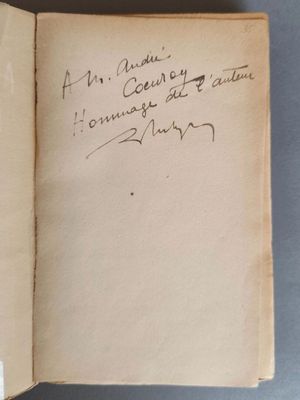 A M. André
Coeuroy
Hommage de l'auteur